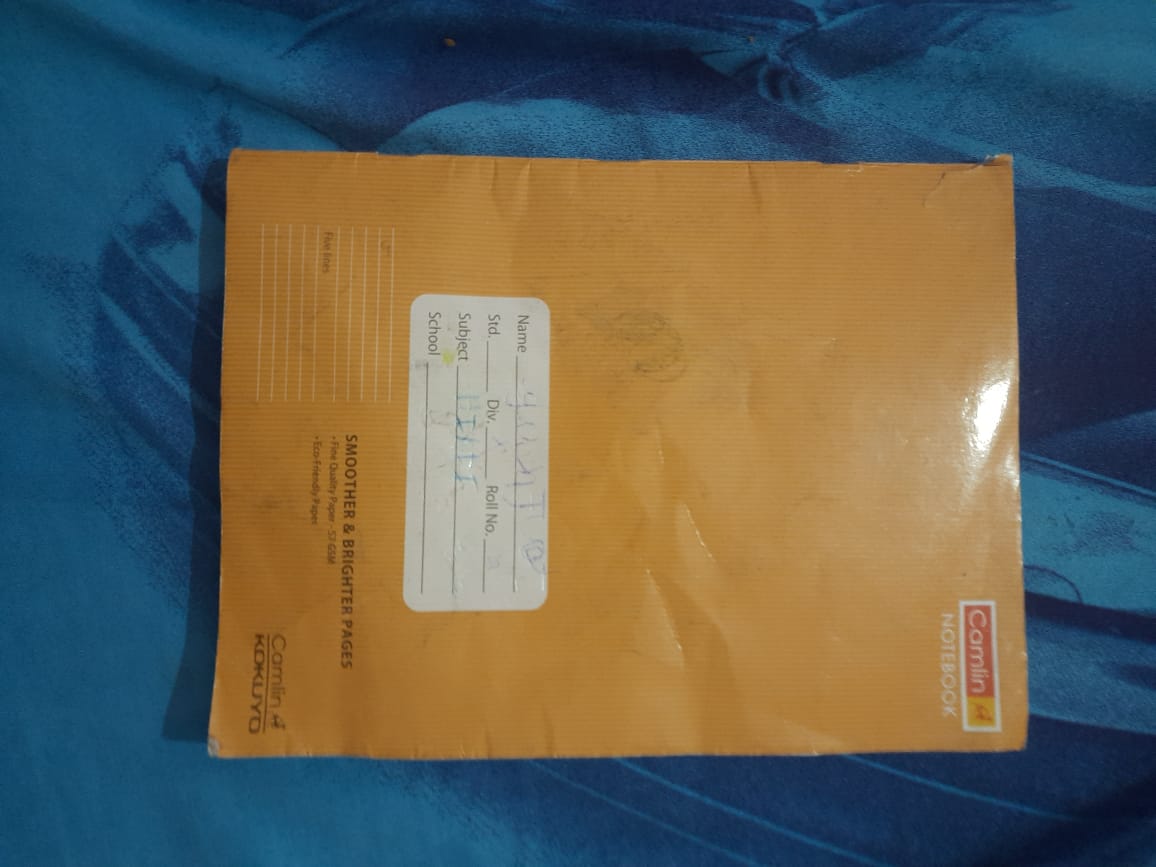 Camlin
NOTEBOOK
Name
Std. Div. Roll No.
Subject
School
Five lines
SMOOTHER & BRIGHTER PAGES
• Fine Quality Paper - 57 GSM
• Eco-Friendly Paper
Camlin
KOKUYO